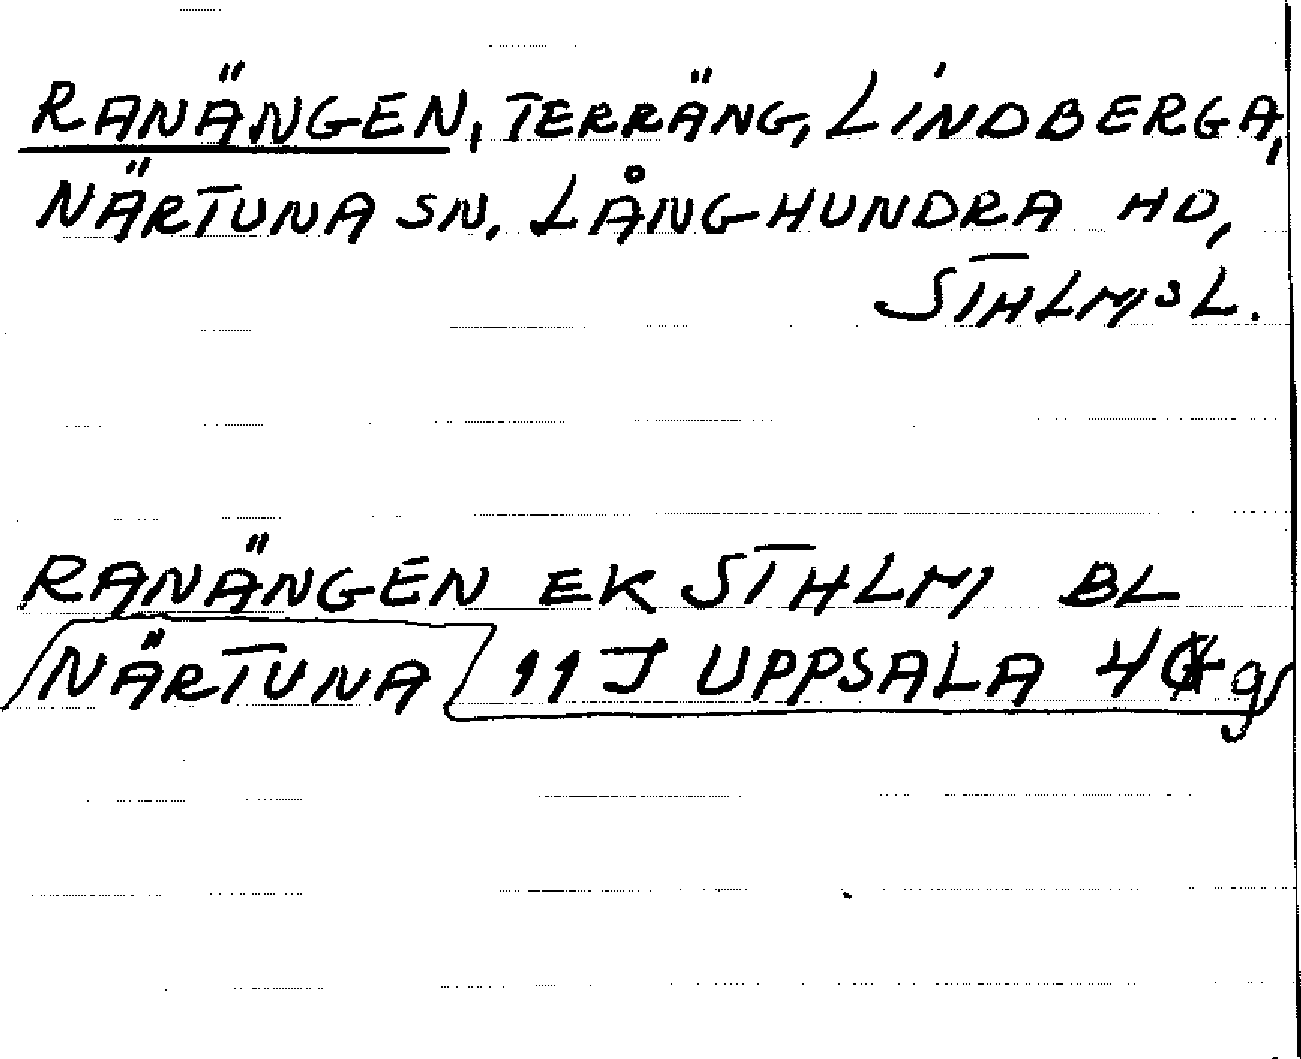 RANÄNGEN, TERRÄNG, LINDBERGA,
NÄRTUNA SN, LÅNGHUNDRA HD,
STHLMSL.
RANÄNGEN EK STHLM BL
NÄRTUNA 11J UPPSALA 4 g